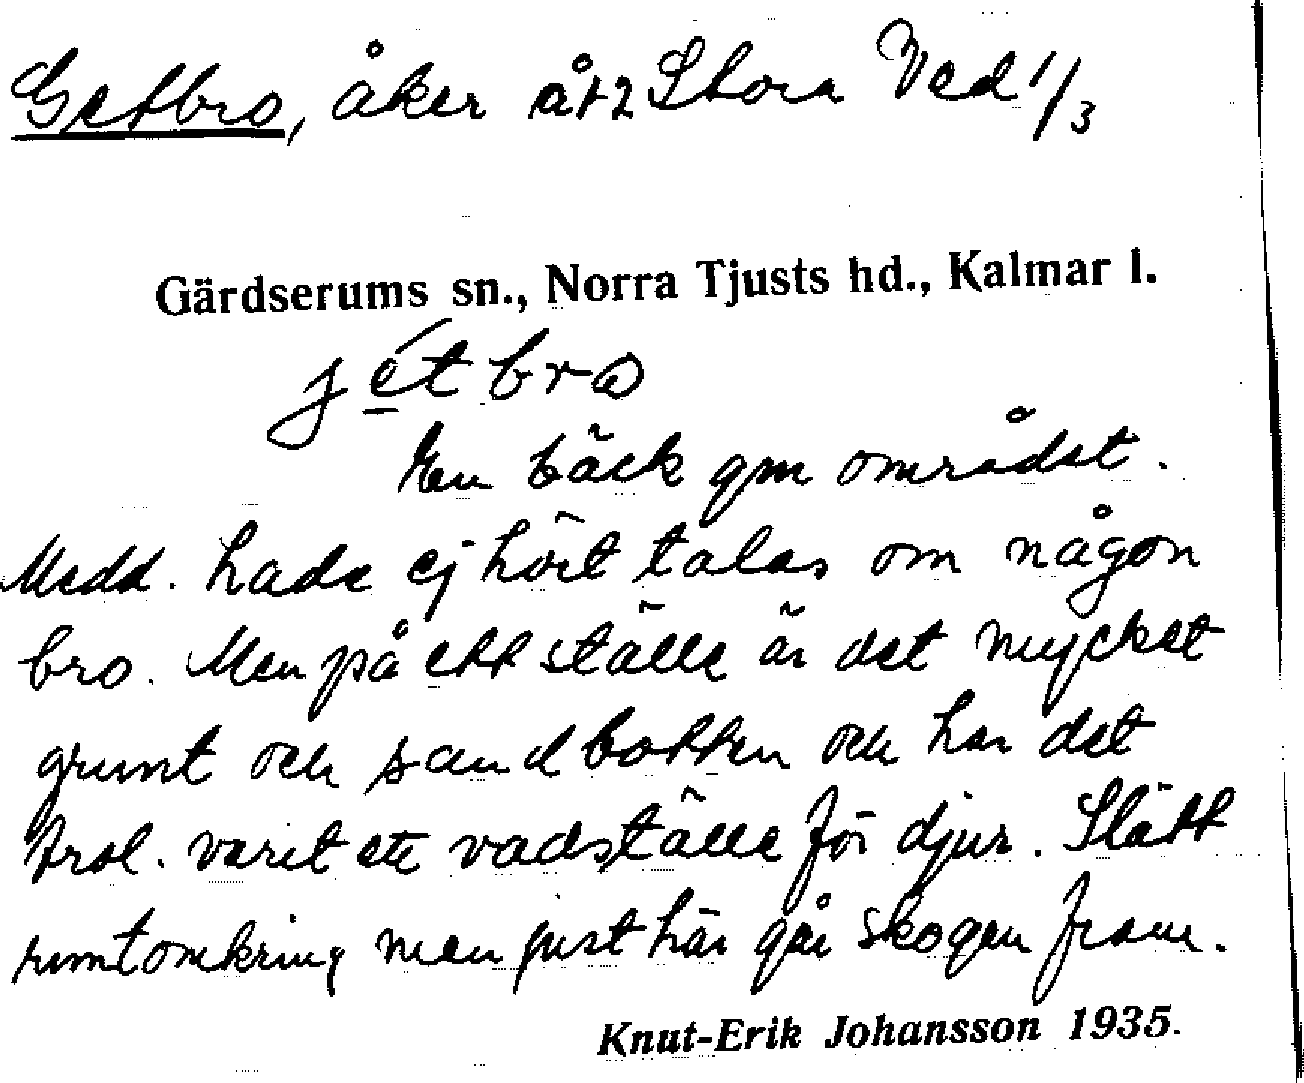 Getbro, åker åt 2 Stora Ved 1/3
Gärdserums sn., Norra Tjusts hd., Kalmar l.
jétbro
En bäck gm området.
Medd. hade ej hört talas om någon
bro. Men på ett ställe är det mycket
grunt och sandbotten och har det
trol. varit ett vadställe för djur. Slätt
runtomkring men just här går skogen fram.
Knut-Erik Johansson 1935.